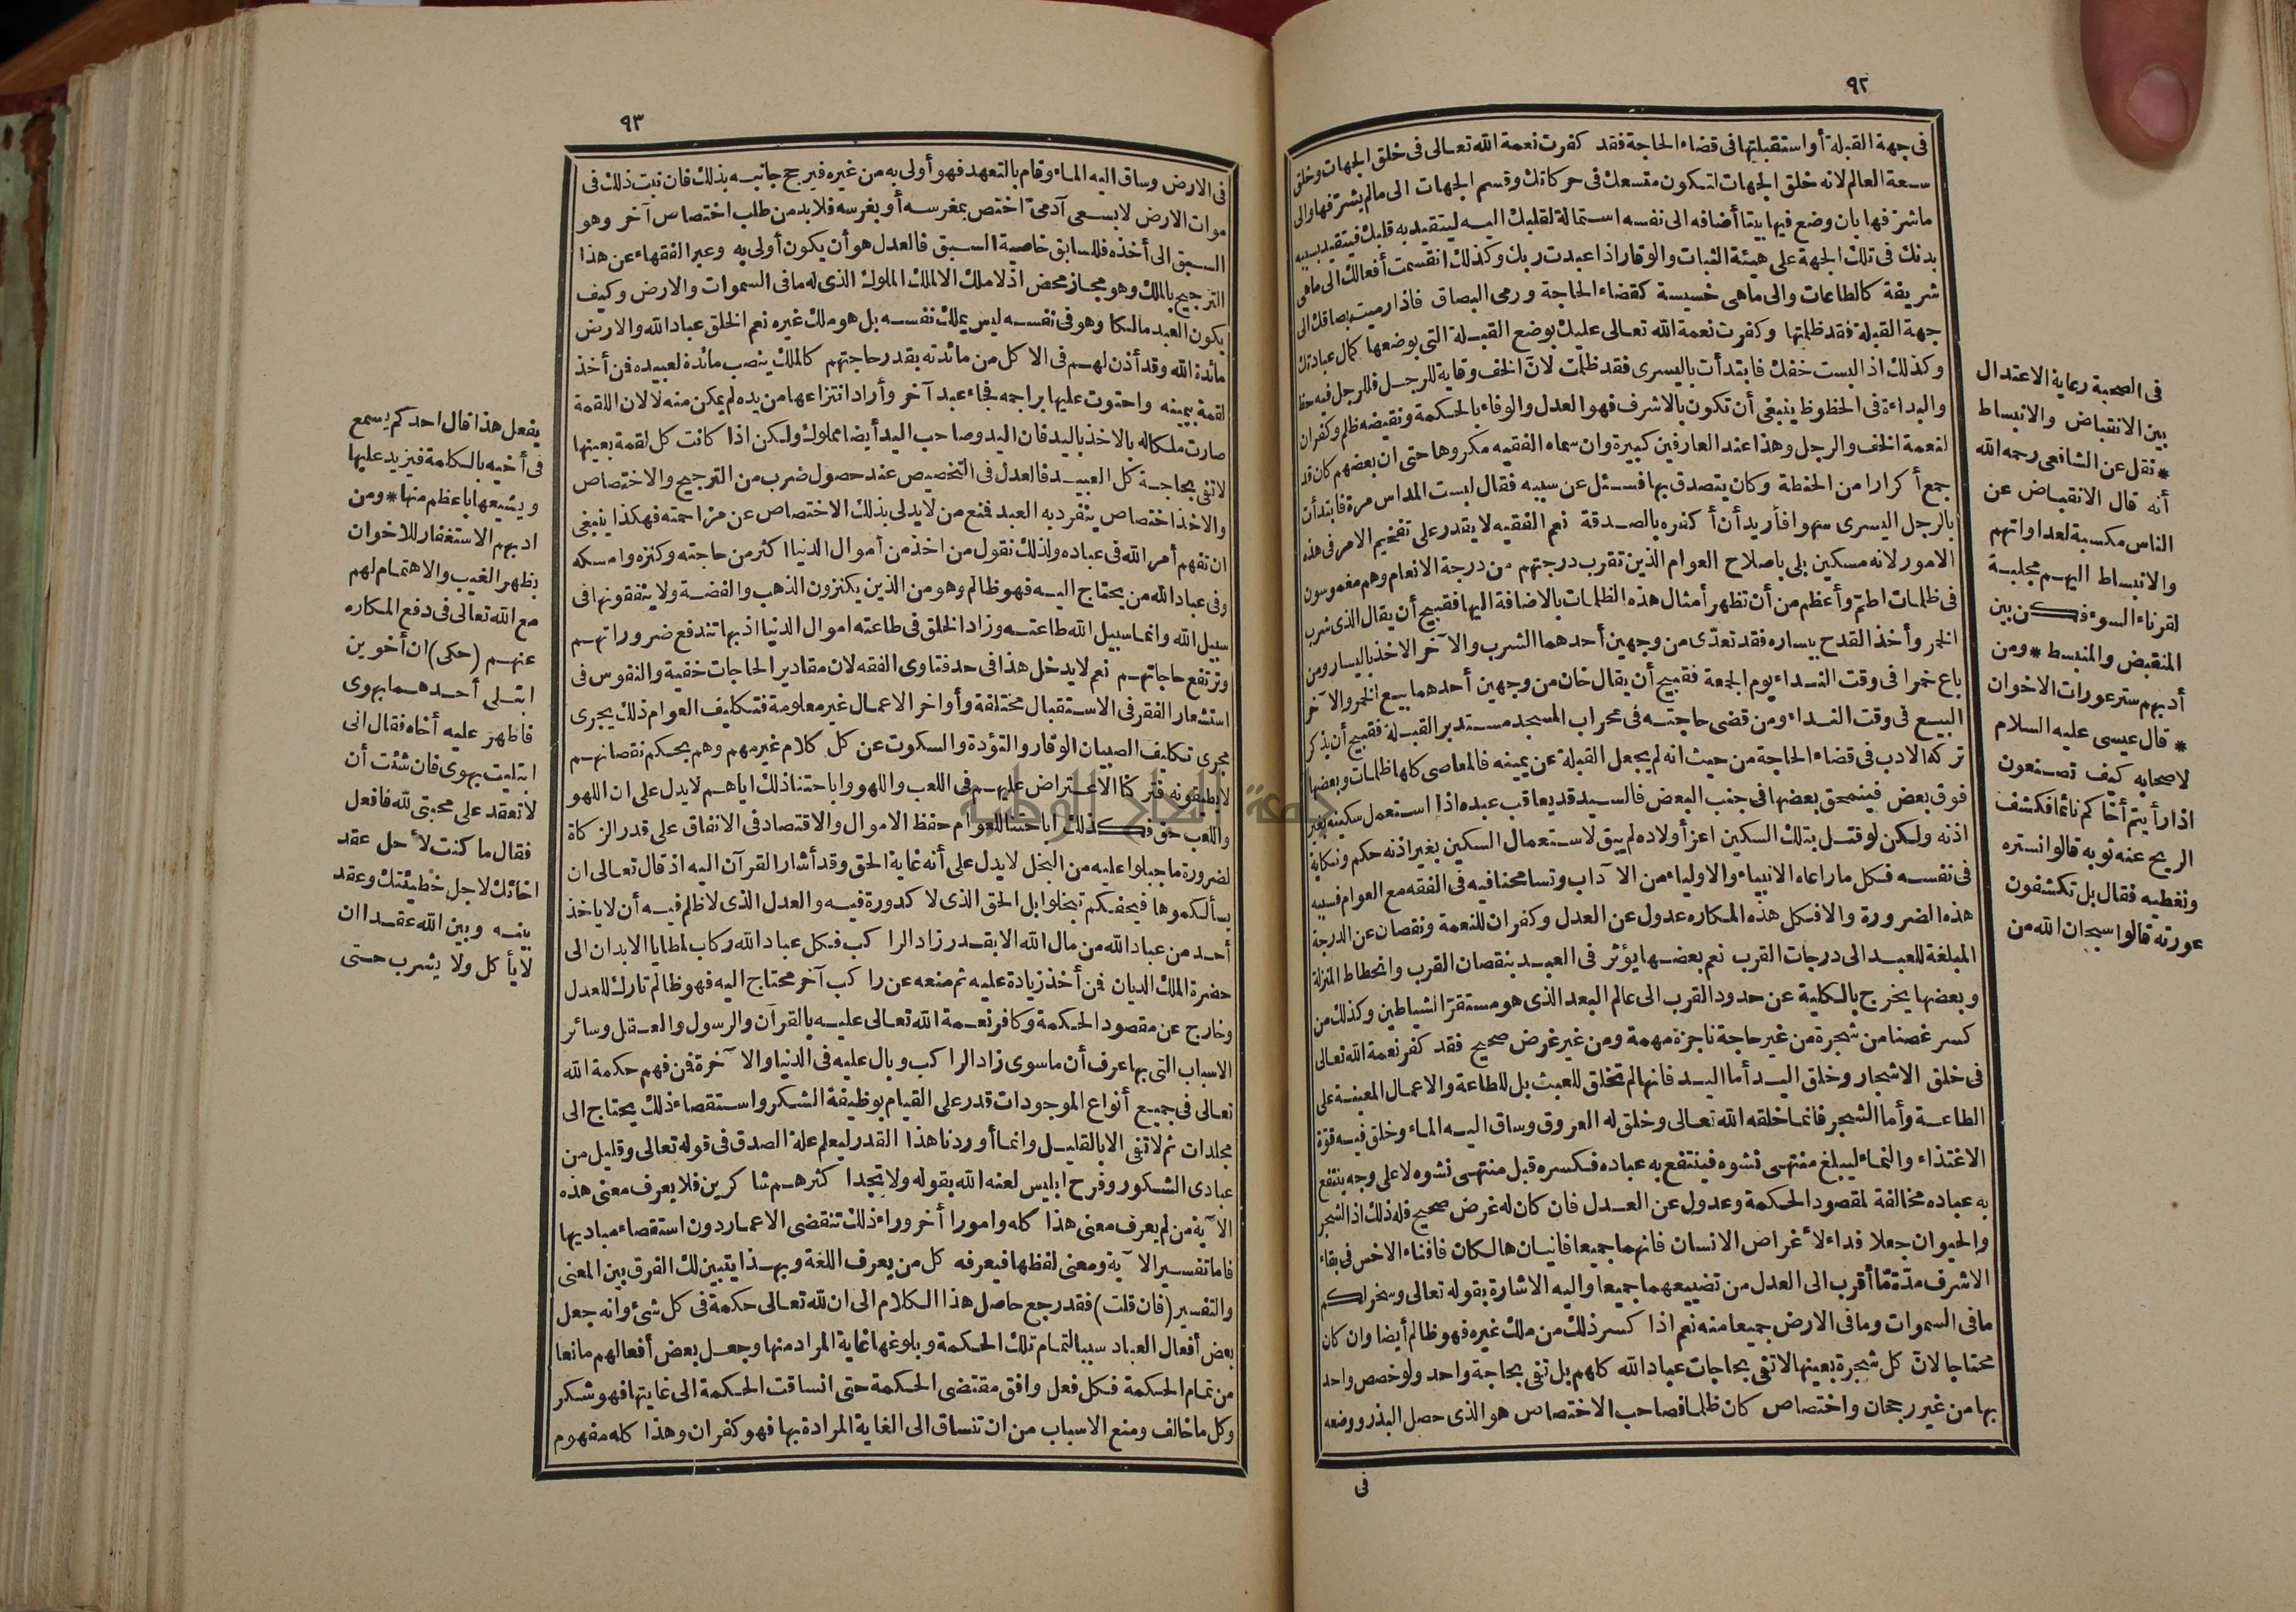 ٩٢
فى جهة القبلة أو استقبلتها فى قضاء الحاجة فقد كفرت نعمة الله تعالى فى خلق الجهات وخلق
سعة العالم لانه خلق الجهات لتكون متسعك فى حركاتك وقسم الجهات الى مالم يشرفها والى
ماشرفها بان وضع فيها بيتا أضافه الى نفسه استمالة لقلبك اليه ليتقيد به قلبك فيتقيد بسببه
بدنك فى تلك الجهة على هيئة الثبات والوقار اذا عبدت ربك وكذلك انقسمت أفعالك الى ماهى
شريفة كالطاعات والى ماهى خسيسة كقضاء الحاجة ورمى البصاق فاذا رميت بصاقك الى
جهة القبلة فقد ظلمتها وكفرت نعمة الله تعالى عليك بوضع القبلة التى بوضعها كمال عبادتك
وكذلك اذا لبست خفك فابتدأت باليسرى فقد ظلمت لان الخف وقاية للرجل فللرجل فيه حظ
والبداءة فى الحظوظ ينبغى أن تكون بالاشرف فهو العدل والوفاء بالحكمة ونقيضه ظلم وكفران
لنعمة الخف والرجل وهذا عند العارفين كبيرة وان سماه الفقيه مكروها حتى ان بعضهم كان قد
جمع أكرارا من الحنطة وكان يتصدق بها فسئل عن سببه فقال لبست المداس مرة فابتدأت
بالرجل اليسرى سهوا فأريد أن أكفره بالصدقة نعم الفقيه لا يقدر على تفخيم الامر فى هذه
الامور لانه مسكين بلى باصلاح العوام الذين تقرب درجتهم من درجة الانعام وهم مغموسون
فى ظلمات اطم وأعظم من أن تظهر أمثال هذه الظلمات بالاضافة اليها فقبيح أن يقال الذى شرب
الخمر وأخذ القدح بيساره فقد تعدى من وجهين أحدهما الشرب والآخر الاخذ باليسار ومن
باع خمرا فى وقت النداء يوم الجمعة فقبيح أن يقال خان من وجهين أحدهما بيع الخمر والآخر
البيع فى وقت النداء ومن قضى حاجته فى محراب المسجد مستدبر القبلة فقبيح أن يذكر
تركه الادب فى قضاء الحاجة من حيث انه لم يجعل القبلة عن يمينه فالمعاصى كلها ظلمات وبعضها
فوق بعض فينمحق بعضها فى جنب البعض فالسيد قد يعاقب عبده اذا استعمل سكينه بغير
اذنه ولكن لو قتل بتلك السكين اعز أولاده لم يبق لاستعمال السكين بغير اذنه حكم ونكاية
فى نفسه فكل ما راعاه الانبياء والاولياء من الآداب وتسامحنا فيه فى الفقه مع العوام فسببه
هذه الضرورة والا فكل هذه المكاره عدول عن العدل وكفران للنعمة ونقصان عن الدرجة
المبلغة للعبد الى درجات القرب نعم بعضها يؤثر فى العبد بنقصان القرب وانحطاط المنزلة
وبعضها يخرج بالكلية عن حدود القرب الى عالم البعد الذى هو مستقر الشياطين وكذلك من
كسر غصنا من شجرة من غير حاجة ناجزة مهمة ومن غير غرض صحيح فقد كفر نعمة الله تعالى
فى خلق الاشجار وخلق اليد أما اليد فانها لم تخلق للعبث بل للطاعة والاعمال المعينة على
الطاعة وأما الشجر فانما خلقه الله تعالى وخلق له العروق وساق اليه الماء وخلق فيه قوّة
الاغتذاء والنماء ليبلغ منتهى نشوه فينتفع به عباده فكسره قبل منتهى نشوه لا على وجه ينتفع
به عباده مخالفة لمقصود الحكمة وعدول عن العدل فان كان له غرض صحيح فله ذلك اذ الشجر
والحيوان جعلا فداء لأغراض الانسان فانهما جميعا فانيان هالكان فافناء الاخس فى بقاء
الاشرف مدّة مّا أقرب الى العدل من تضييعهما جميعا واليه الاشارة بقوله تعالى وسخر لكم
مافى السموات ومافى الارض جميعا منه نعم اذا كسر ذلك من ملك غيره فهو ظالم أيضا وان كان
محتاجا لان كل شجرة بعينها لا تفى بحاجات عباد الله كلهم بل تفى بحاجة واحد ولو خصص واحد
بها من غير رجحان واختصاص كان ظلما فصاحب الاختصاص هو الذى حصل البذر ووضعه
فى
فى الصحبة رعاية الاعتدال
بين الانقباض والانبساط
* نقل عن الشافعى رحمه الله
أنه قال الانقباض عن
الناس مكسبة لعداواتهم
والانبساط اليهم مجلبة
لقرناء السوء فكن بين
المنقبض والمنبسط * ومن
أدبهم ستر عورات الاخوان
* قال عيسى عليه السلام
لاصحابه كيف تصنعون
اذا رأيتم أخاكم نائما فكشف
الريح عنه ثوبه قالوا نستره
ونغطيه فقال بل تكشفون
عورته قالوا سبحان الله من
٩٣
فى الارض وساق اليه الماء وقام بالتعهد فهو أولى به من غيره فيرجح جانبه بذلك فان نبت ذلك فى
موات الارض لا بسعى آدمىّ اختص بمغرسه أو بغرسه فلا بد من طلب اختصاص آخر وهو
السبق الى أخذه فللسابق خاصية السبق فالعدل هو أن يكون أولى به وعبر الفقهاء عن هذا
الترجيح بالملك وهو مجاز محض اذ لا ملك الا لملك الملوك الذى له مافى السموات والارض وكيف
يكون العبد مالكا وهو فى نفسه ليس يملك نفسه بل هو ملك غيره نعم الخلق عباد الله والارض
مائدة الله وقد أذن لهم فى الاكل من مائدته بقدر حاجتهم كالملك ينصب مائدة لعبيده فمن أخذ
لقمة بيمينه واحتوت عليها براجمه فجاء عبد آخر وأراد انتزاعها من يده لم يمكن منه لا لان اللقمة
صارت ملكا له بالاخذ باليد فان اليد وصاحب اليد أيضا مملوك ولكن اذا كانت كل لقمة بعينها
لا تفى بحاجة كل العبيد فالعدل فى التخصيص عند حصول ضرب من الترجيح والاختصاص
والاخذ اختصاص ينفرد به العبد فمنع من لا يدلى بذلك الاختصاص عن مزاحمته فهكذا ينبغى
ان تفهم أمر الله فى عباده ولذلك نقول من اخذ من أموال الدنيا اكثر من حاجته وكنزه وامسكه
وفى عباد الله من يحتاج اليه فهو ظالم وهو من الذين يكنزون الذهب والفضة ولا ينفقونها فى
سبيل الله وانما سبيل الله طاعته وزاد الخلق فى طاعته اموال الدنيا اذ بها تندفع ضروراتهم
وترتفع حاجاتهم نعم لا يدخل هذا فى حد فتاوى الفقه لان مقادير الحاجات خفية والنفوس فى
استشعار الفقر فى الاستقبال مختلفة وأواخر الاعمال غير معلومة فتكليف العوام ذلك يجرى
مجرى تكليف الصبيان الوقار والتؤدة والسكوت عن كل كلام غير مهم وهم بحكم نقصانهم
لا يطيقونه فتركنا الاعتراض عليهم فى اللعب واللهو واباحتنا ذلك اياهم لا يدل على ان اللهو
واللعب حق فكذلك اباحتنا للعوام حفظ الاموال والاقتصاد فى الانفاق على قدر الزكاة
لضرورة ما جبلوا عليه من البخل لا يدل على أنه غاية الحق وقد أشار القرآن اليه اذ قال تعالى ان
يسألكموها فيحفكم تبخلوا بل الحق الذى لا كدورة فيه والعدل الذى لا ظلم فيه أن لا ياخذ
أحد من عباد الله من مال الله الا بقدر زاد الراكب فكل عباد الله ركاب لمطايا الابدان الى
حضرة الملك الديان فمن أخذ زيادة عليه ثم منعه عن راكب آخر محتاج اليه فهو ظالم تارك للعدل
وخارج عن مقصود الحكمة وكافر نعمة الله تعالى عليه بالقرآن والرسول والعقل وسائر
الاسباب التى بها عرف أن ماسوى زاد الراكب وبال عليه فى الدنيا والآخرة فمن فهم حكمة الله
تعالى فى جميع أنواع الموجودات قدر على القيام بوظيفة الشكر واستقصاء ذلك يحتاج الى
مجلدات ثم لا تفى الا بالقليل وانما أوردنا هذا القدر ليعلم علة الصدق فى قوله تعالى وقليل من
عبادى الشكور وفرح ابليس لعنه الله بقوله ولا تجد اكثرهم شاكرين فلا يعرف معنى هذه
الآية من لم يعرف معنى هذا كله وامورا أخر وراء ذلك تنقضى الاعمار دون استقصاء مباديها
فاما تفسير الآية ومعنى لفظها فيعرفه كل من يعرف اللغة وبهذا يتبين لك الفرق بين المعنى
والتفسير (فان قلت) فقد رجع حاصل هذا الكلام الى ان لله تعالى حكمة فى كل شئ وانه جعل
بعض أفعال العباد سببا لتمام تلك الحكمة وبلوغها غاية المراد منها وجعل بعض أفعالهم مانعا
من تمام الحكمة فكل فعل وافق مقتضى الحكمة حتى انساقت الحكمة الى غايتها فهو شكر
وكل ماخالف ومنع الاسباب من ان تنساق الى الغاية المرادة بها فهو كفران وهذا كله مفهوم
يفعل هذا قال احدكم يسمع
فى أخيه بالكلمة فيزيد عليها
ويشيعها باعظم منها * ومن
ادبهم الاستغفار للاخوان
بظهر الغيب والاهتمام لهم
مع الله تعالى فى دفع المكاره
عنهم (حكى) ان أخوين
ابتلى أحدهما بهوى
فاظهر عليه أخاه فقال انى
ابتليت بهوى فان شئت أن
لا تعقد على محبتى لله فافعل
فقال ما كنت لأحل عقد
اخائك لاجل خطيئتك وعقد
بينه وبين الله عقدا ان
لا يأكل ولا يشرب حتى
جامعة النجاح الوطنية